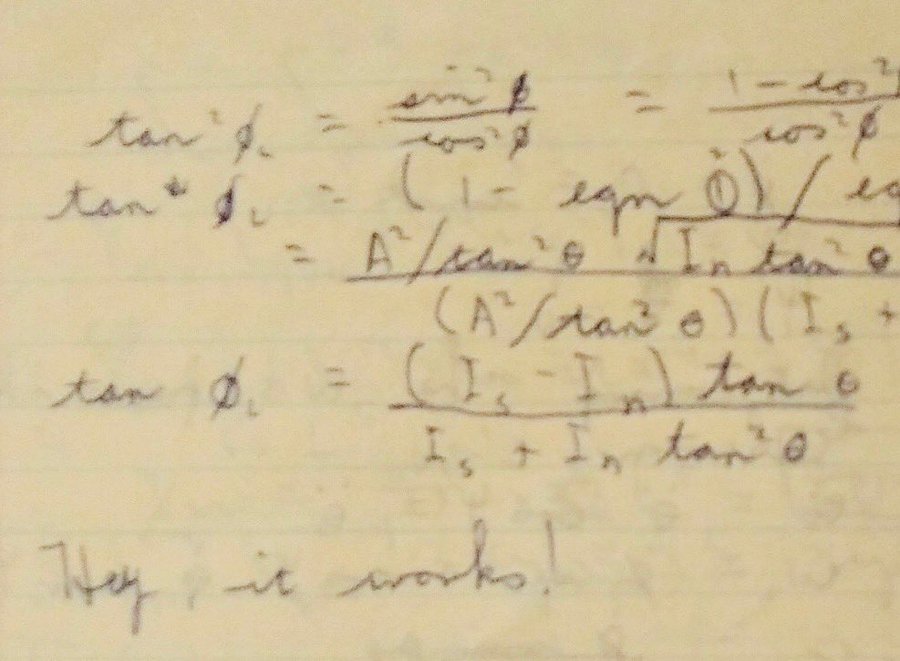 tan² ϕᵢ = sin² ϕ / cos² ϕ = 1 − cos² / cos² ϕ
tan² ϕᵢ = (1 − eqn ①) / eq
= A²/tan² θ √Iₙ tan² θ / (A²/tan² θ) (Iₛ +
tan ϕᵢ = (Iₛ − Iₙ) tan θ / Iₛ + Iₙ tan² θ
Hey, it works!